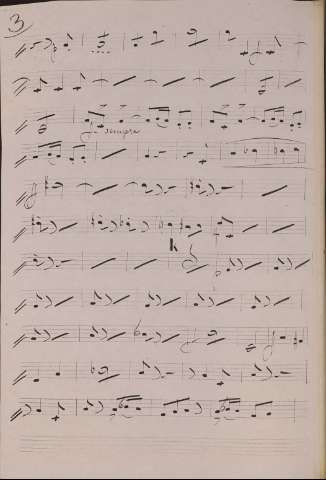 3
sempre
k